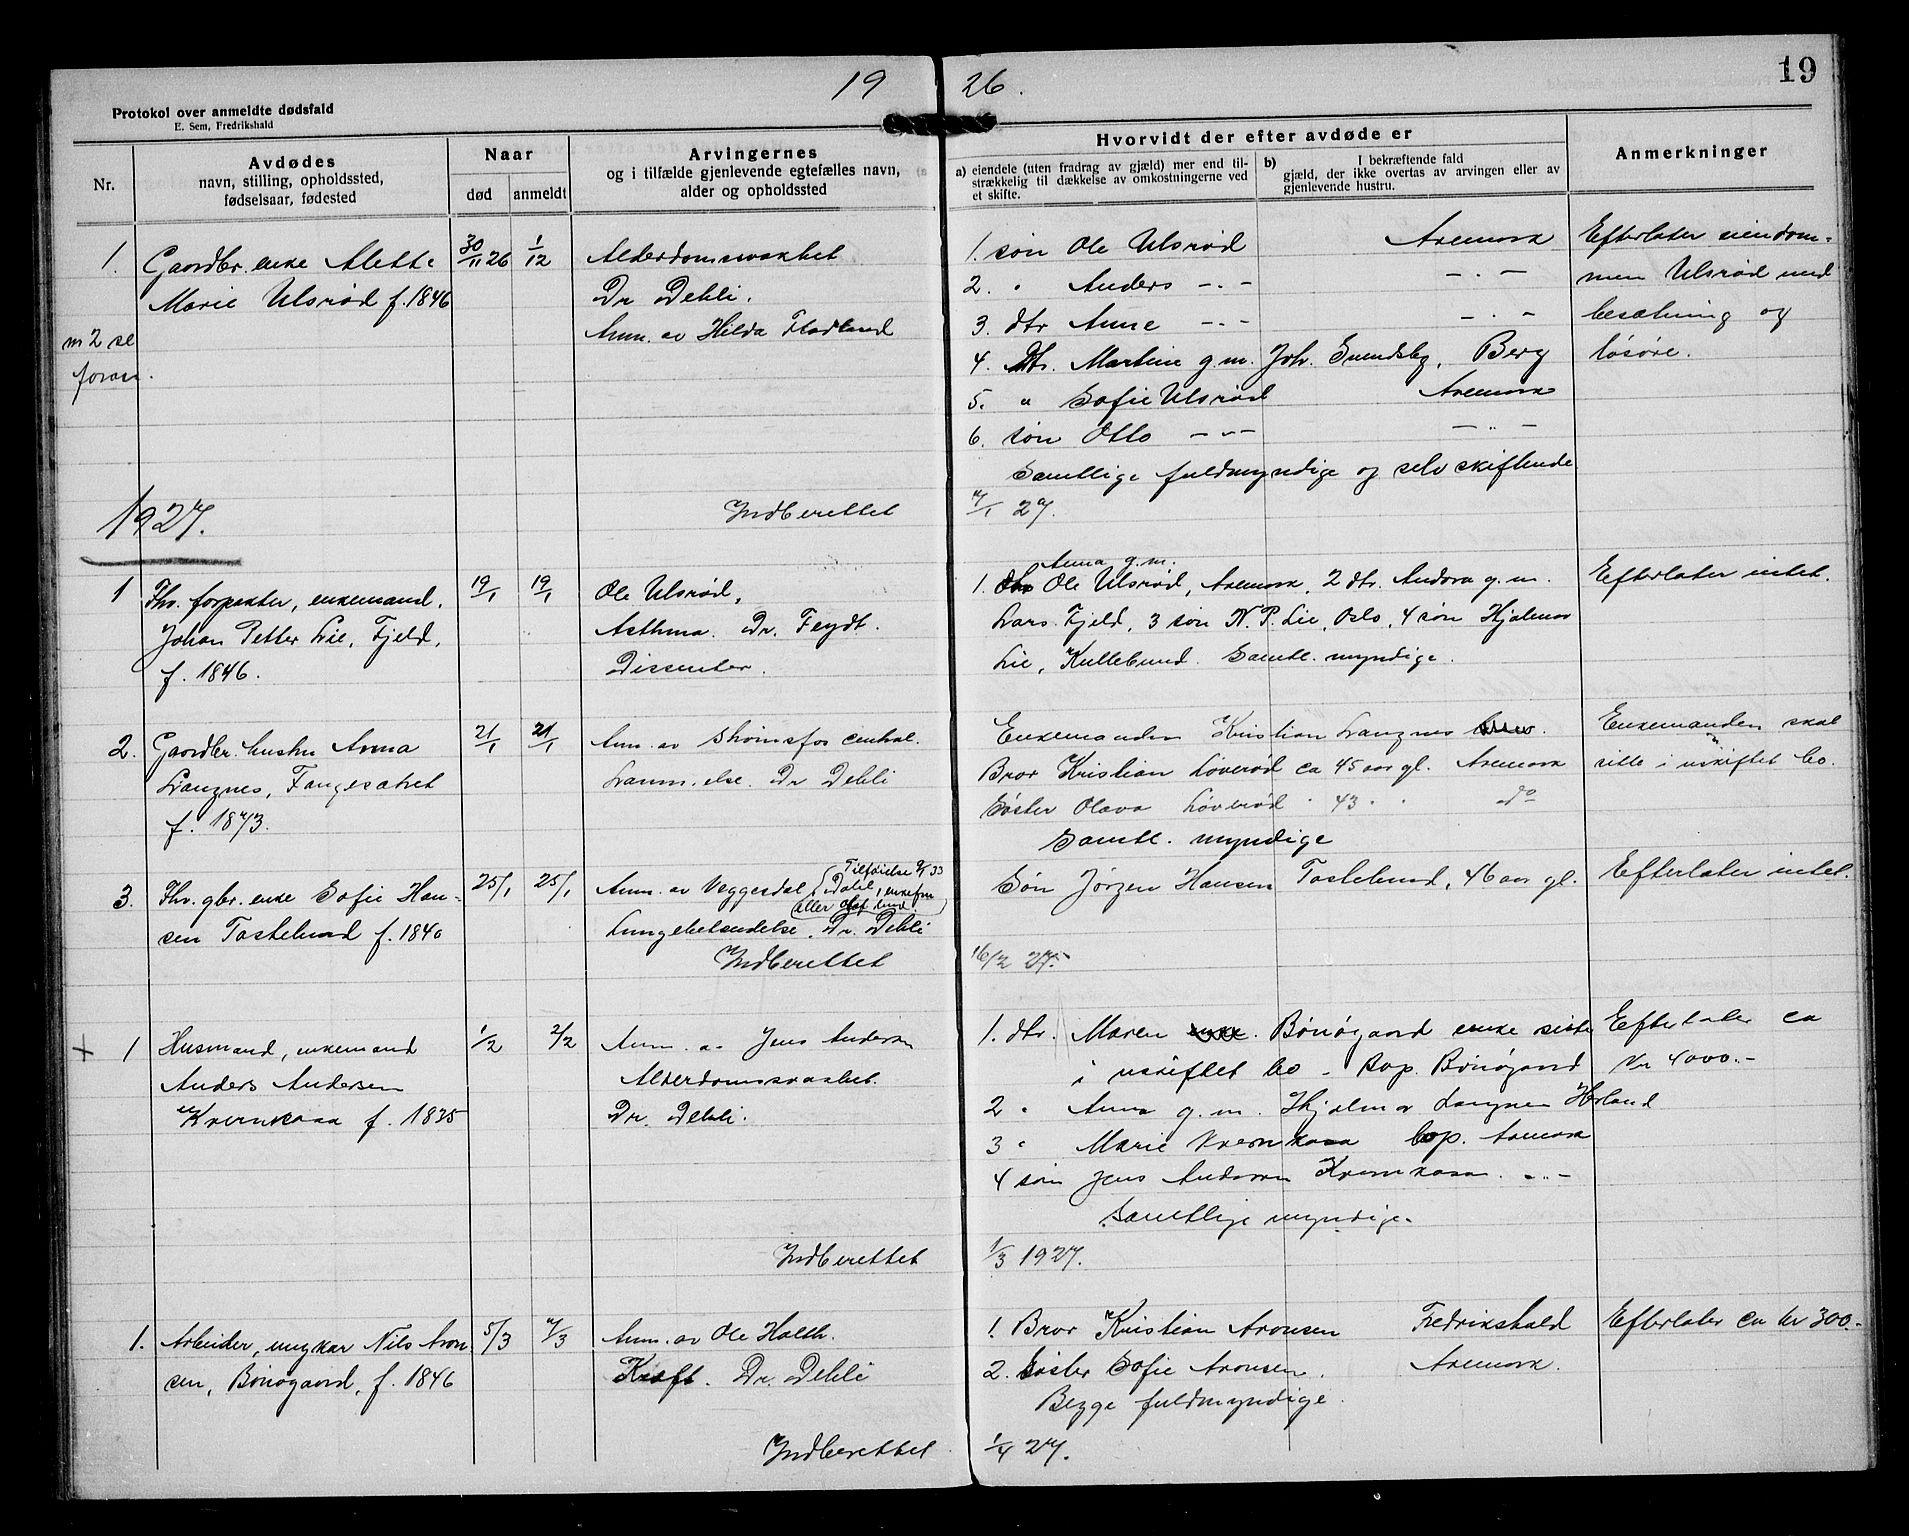 19 26.
19
Protokol over anmeldte dødsfald
E. Sem, Fredrikshald
Nr.
Avdødes
navn, stilling, opholdssted,
fødselsaar, fødested
Naar
død anmeldt
Arvingernes
og i tilfælde gjenlevende egtefælles navn,
alder og opholdssted
Hvorvidt der efter avdøde er
a) eiendele (uten fradrag av gjæld) mer end til-
strækkelig til dækkelse av omkostningerne ved
et skifte.
b) I bekræftende fald
gjæld, der ikke overtas av arvingen eller av
gjenlevende hustru.
Anmerkninger
1. Gaardbr. enke Alette
Marie Ulsrød f. 1846
m 2 se
foran.
30/11 26 1/12
Alderdomssvakhet
Dr Dehli.
Anm. av Hilda Fladland
1. søn Ole Ulsrød Aremark
2. " Anders - " - - " -
3. dtr Anne - " - - " -
4. Dtr. Martine g.m. Joh. Svendsby, Berg
5. " Sofie Ulsrød Aremark
6. søn Otto - " - - " -
Samtlige fuldmyndige og selvskiftende
Efterlater eiendom-
men Ulsrød med
besætning og
løsøre.
Indberettet 7/1 27.
1927.
1 Fhv. forpakter, enkemand,
Johan Petter Lie, Fjeld,
f. 1846.
19/1 19/1
Ole Ulsrød,
Asthma. Dr. Feydt.
Dissenter.
Anna g.m.
1. dtr Ole Ulsrød, Aremark, 2 dtr. Andora g.m.
Lars Fjeld, 3 søn N. P. Lie, Oslo, 4 søn Hjalmar
Lie, Kullebund. Samtl. myndige.
Efterlater intet.
2. Gaardbr. hustru Anna
Langnes, Fangesætret
f. 1873.
21/1 21/1
Anm. av Strømsfos central.
Lammelse. Dr Dehli
Enkemanden Kristian Langnes
Bror Kristian Løverød ca 45 aar gl. Aremark
Søster Olava Løverød " 43 " " do
Samtl. myndige
Enkemanden skal
sitte i uskiftet bo.
3. Fhv. gbr. enke Sofie Han-
sen Tostelund f. 1840
25/1 25/1
Tilføielse 9/5 33
Anm. av Veggesdal
eller Olaf Lund
Lungebetændelse. Dr. Dehli
Søn Jørgen Hansen Tostelund, 46 aar gl.
Efterlater intet.
Indberettet 16/2 27.
+ 1 Husmand, enkemand
Anders Andersen
Kvernkasa f. 1835
1/2 2/2
Anm. av Jens Andersen
Alderdomssvakhet.
Dr. Dehli.
1. dtr. Maren Bønøgaard enke sitte
i uskiftet bo - Bop. Bønøgaard
2 " Anna g.m. Hjalmar Langnes
3 " Marie Kvernkasa bop. Aremark
4 søn Jens Andersen Kvernkasa. - " -
Samtlige myndige.
Efterlater ca
Kr 4000.-
Indberettet 1/3 1927.
1. Arbeider, ungkar Nils Aron
sen, Bønøgaard, f. 1846
5/3 7/3
Anm. av Ole Holth.
Kræft. Dr. Dehli
1. Bror Kristian Aronsen Fredrikshald
2. Søster Sofie Aronsen. Aremark.
Begge fuldmyndige.
Efterlater ca kr 300.-
Indberettet 1/4 27.